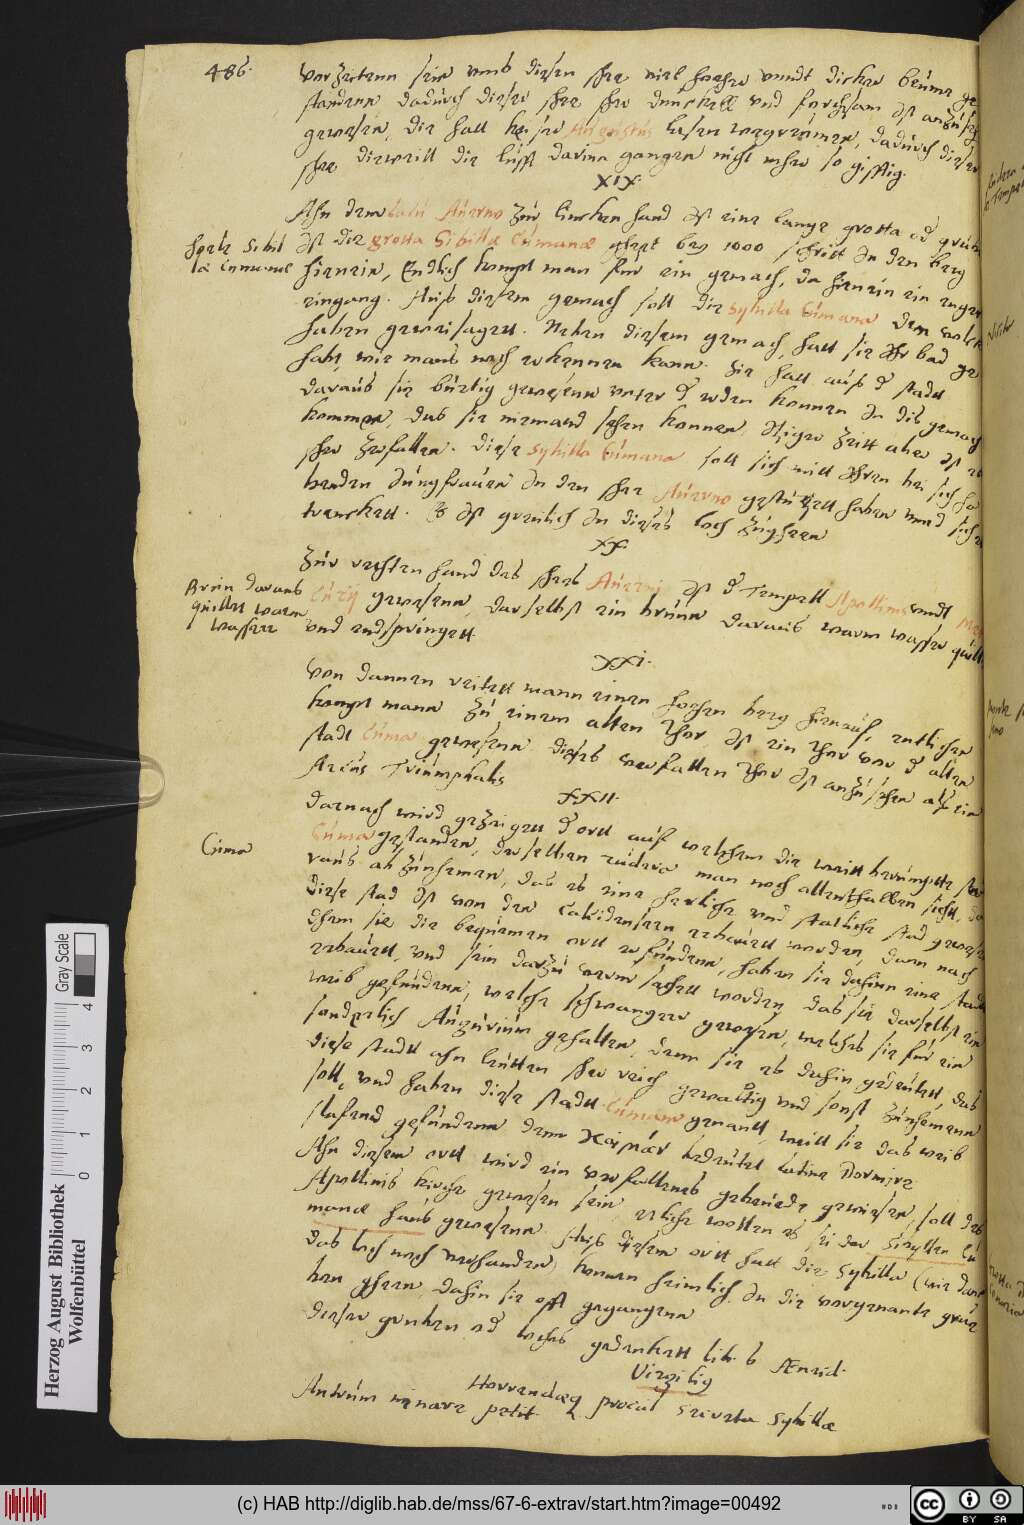 486.
vorzeitenn sein umb diesen shee viel hoche unndt dicke beüme ge
standenn dadürch dieser shee sehr dunckell und forchsam ist anzusehen
gewesen, die hatt keiser Augustus lasen wegreümen, dadürch dieser
shee dieweill die lüfft darinn gangen nicht mehr so gifftig.
XIX.
Ahn dem lacu Auerno zür lincken hand ist eine lange grotta od gruben
ist die grotta Sibillæ Cumanæ gehet bey 1000 schritt in den berg
hole Sibil
læ Cumanæ
hienein, Endlich kompt man für ein gemach, da hienein ein enger
eingang. Auß diesem gemach soll die Sybilla Cumana dem volck
haben geweisagett. Neben diesem gemach, hatt sie ihr bad ge
habt, wie mans noch erkennen kann. Sie hatt auß d stadt
daraus sie bürtig gewesenn unter d erden konnen in dis gemach
kommen, das sie niemand sehen konnen, itziger Zeitt aber ist es
sehr zerfallen. Diese Sybilla Cumana soll sich mitt ihren bei sich ha
benden jüngfrauen in den shee Auerno gestürtzett haben unnd sich er
trenckett. Es ist greulich in dieses loch zugehenn
XX.
Zür rechten hand des shees Auerni ist d Tempell Apollinis unndt Mer
Brün daraus
quillet warm
wasser
curij gewesenn, daselbst ein brünn daraus warm wasser quilt
und endspringett.
XXI.
Von dannen reitett mann einen hochen berg hienauf, entlichen
kompt mann zu einem alten Thor, ist ein Thor vor d alten
stadt Cuma gewesenn. dieses verfallen Thor ist anzusehen als ein
Arcus Triumphalis
XXII.
Darnach wird gezeigett d ortt auf welchem die weitt berümpte stadt
Cuma
Cuma gestanden, derselben rudera man noch allenthalben sicht, da
raus abzunhemen, das es eine herliche und statliche stad gewesen
diese stad ist von den Calcidensern erbauett worden, dann nach
dhem sie die bequemen ortt erfundenn, haben sie dahinn eine stadt
erbauett, und sein darzu verursachett worden, das sie daselbst ein
weib gefundenn, welche schwanger gewesen, welches sie für ein
sonderlich Augurium gehalten, denn sie es dahin gedeutett, das
diese stadt ahn leutten sehr reich gewaltig und sonst zunhemenn
soll, und haben diese stadt Cumam genantt, weill sie das weib
slafend gefundenn dann χοιμάω bedeutet latine Dormire
Ahn diesem ortt wird ein verfallenes gebeude gewiesen, soll des
Apollinis kirche gewesen sein, etliche wollen es sei der Sibyllen Cu
manæ haus gewesenn. Auß diesem ortt hatt die Sybilla (wie dann
das loch noch verhanden) konnen heimlich in die vorgenante gru
ben gehenn, dahin sie offt gegangenn
Dieser gruben od loches gedenkett lib. 6 Æneid.
Virgilig
Horrendæq procul secreta Sybillæ
Antrum immane petit.
Herzog August Bibliothek
Wolfenbüttel
Gray Scale
0 1 2 3 4
(c) HAB http://diglib.hab.de/mss/67-6-extrav/start.htm?image=00492